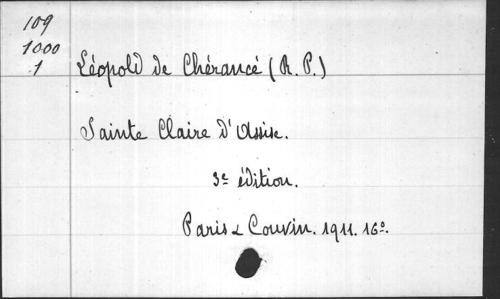 109
1000
1
Léopold de Chérancé (R. P.)
Sainte Claire d'Assise.
3e édition.
Paris & Couvin. 1911. 16º.